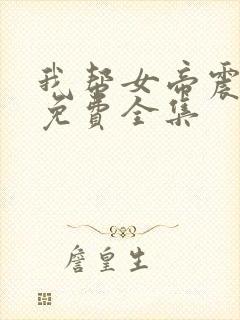 我帮女帝震
免費全集
詹皇生